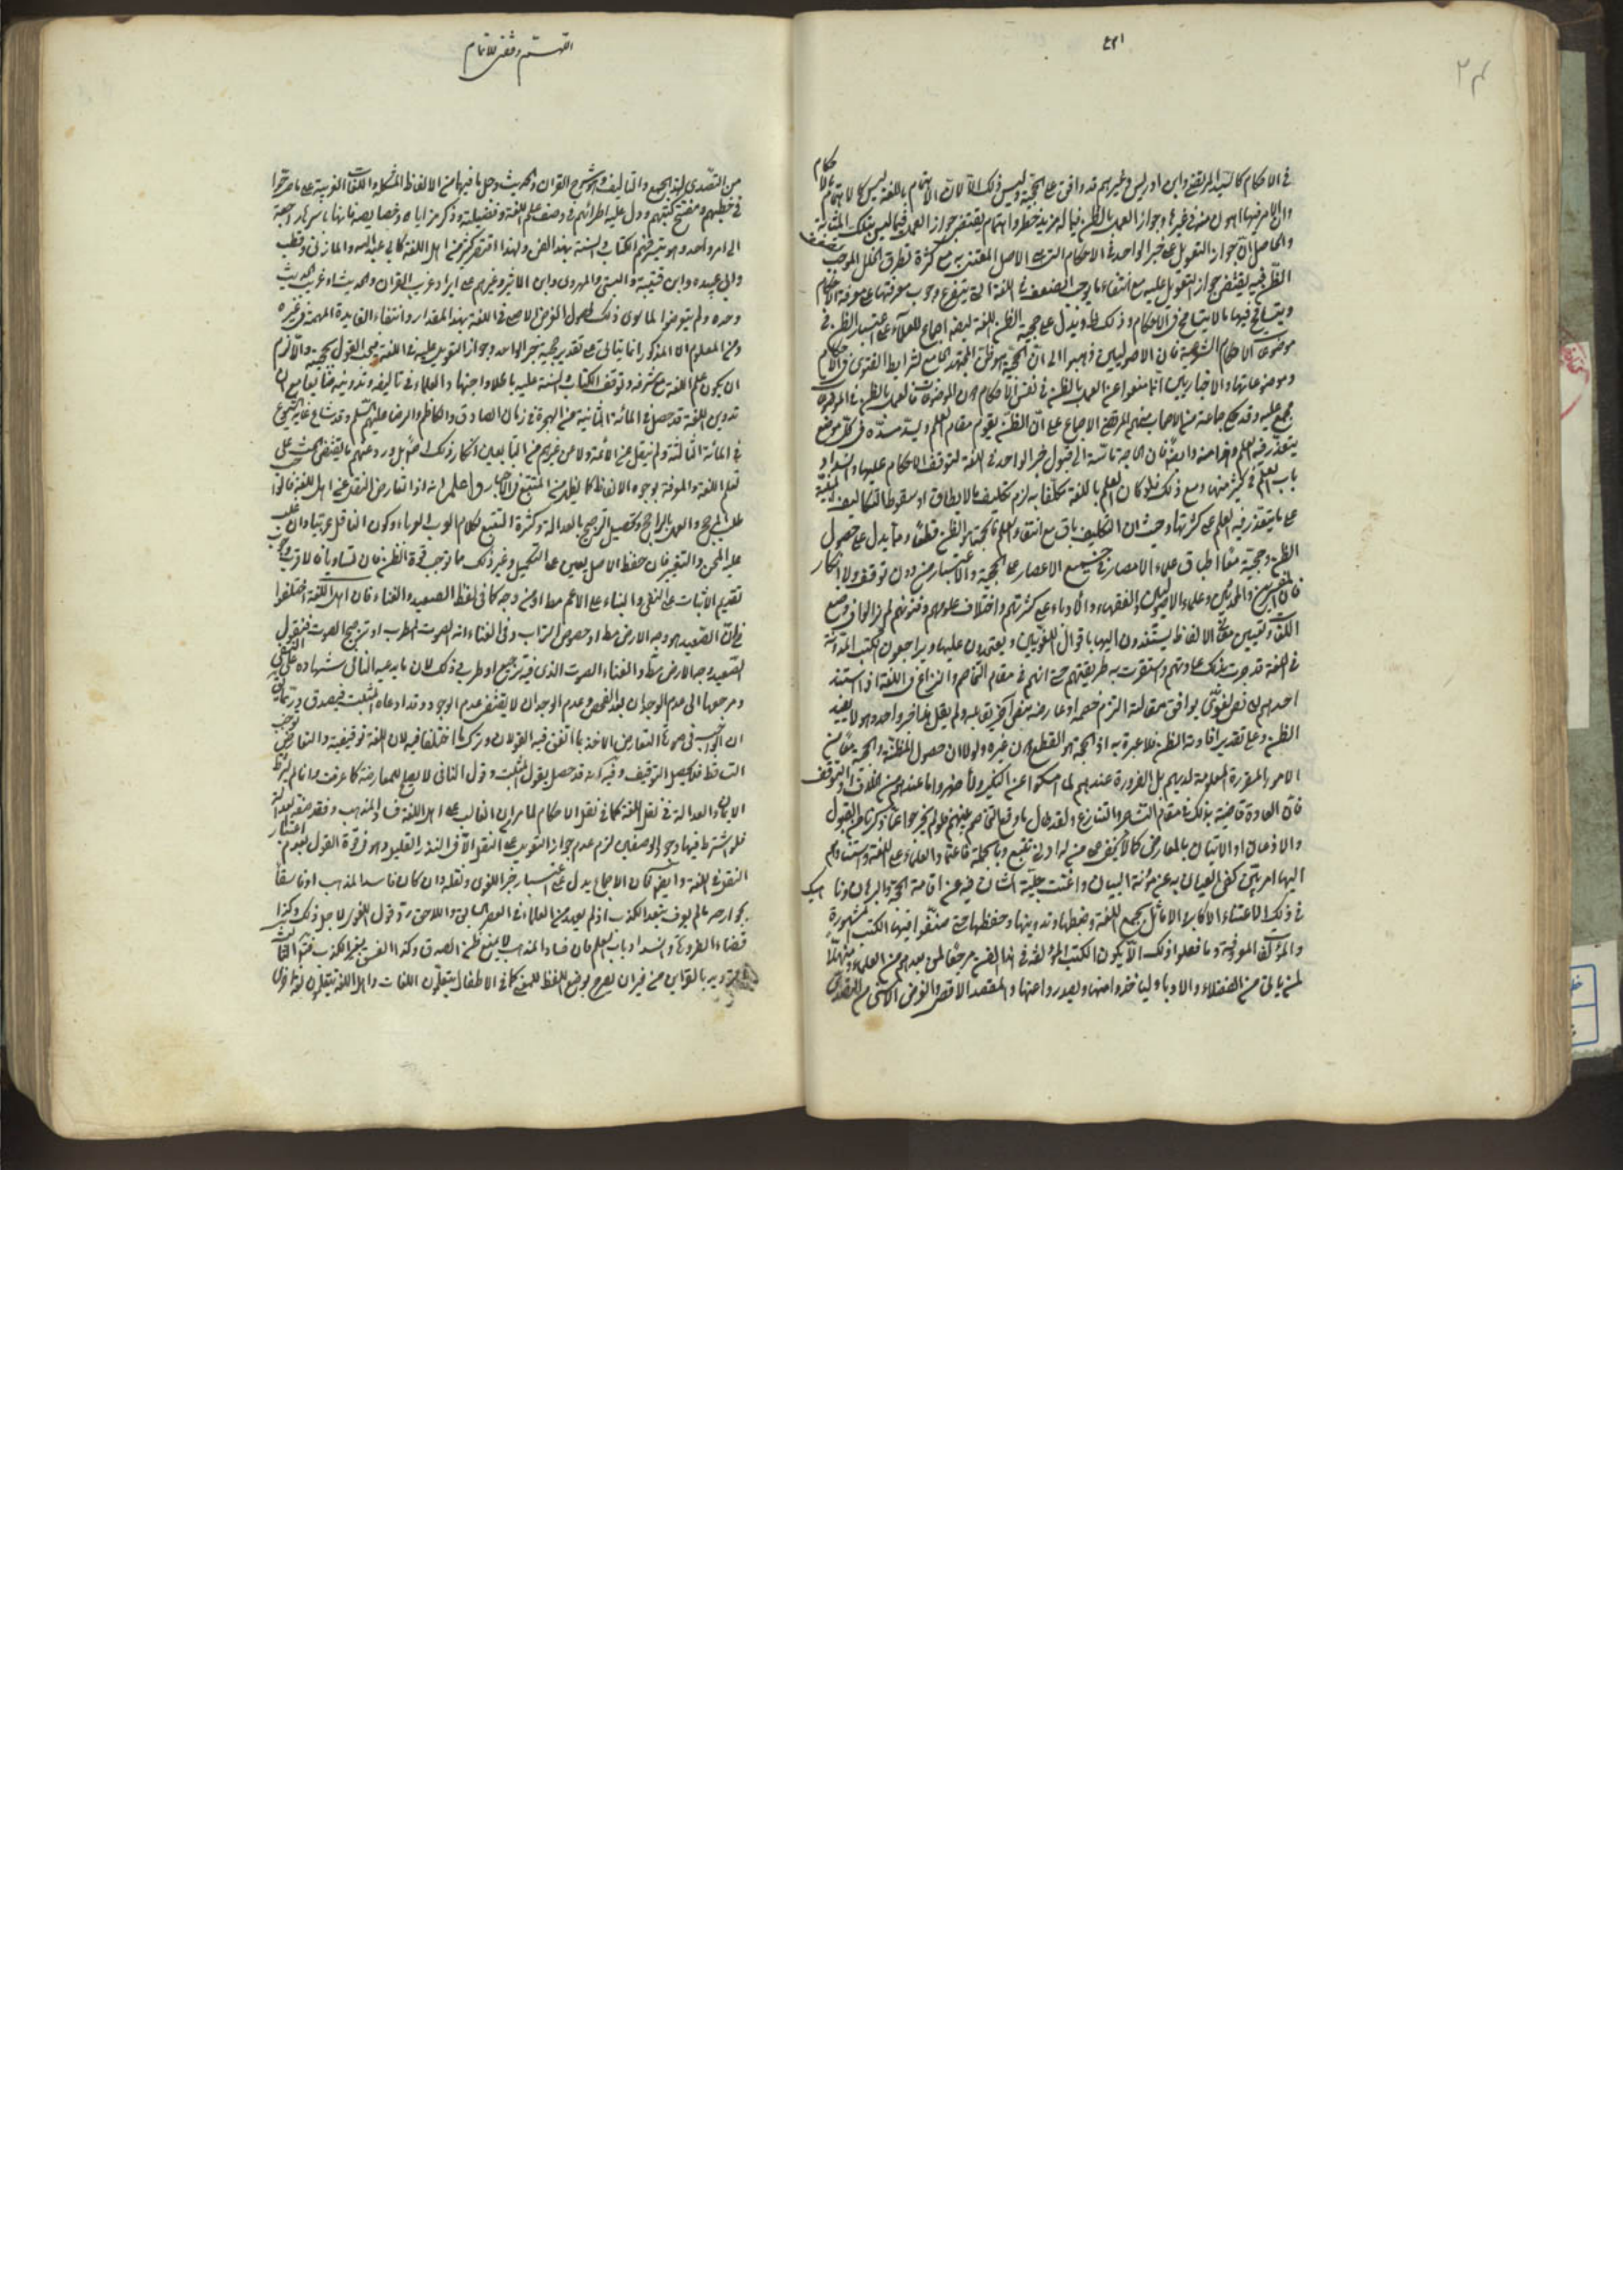 في الاحكام كالسيد المرتضى وابن ادريس وغيرهم قد وافق على الحجية وليس ذلك الا لان الاهتمام باللغة ليس كالاهتمام بالاحكام
وان الامر فيها اهون منه في غيرها وجواز العمل بالظن فيما له مزيد خطر واهتمام يقتضي جواز العمل فيما ليس بتلك المثابة
والحاصل ان جواز التعويل على خبر الواحد في الاحكام التي هي الاصل المعتنى به مع كثرة تطرق الخلل الموجب لضعف
الظن فيه يقتضي جواز التعويل عليه مع انتفاء ما يوجب الضعف في اللغة التي يتفرع وجوب معرفتها على معرفة الاحكام
ويتسامح فيها ما لا يتسامح في الاحكام وذلك ظ ويدل على حجية الظن في اللغة ايضا اجماع العلماء على اعتبار الظن في
موضوعات الاحكام الشرعية فان الاصوليين ذهبوا الى ان الحجة هو ظن المجتهد الجامع لشرايط الفتوى في الاحكام
وموضوعاتها والاخباريين انما منعوا عن العمل بالظن في نفس الاحكام دون الموضوعات فالعمل بالظن في الموضوعات
مجمع عليه وقد حكى جماعة من الاصحاب منهم المرتضى الاجماع على ان الظن يقوم مقام العلم ويسد مسده في كل موضع
يتعذر فيه العلم فان الحاجة ماسة الى قبول خبر الواحد في اللغة لتوقف الاحكام عليها وانسداد
باب العلم في كثير منها ومع ذلك فلو كان العلم باللغة مكلفا به لزم تكليف ما لا يطاق او سقوط التكاليف المبنية
على ما يتعذر فيه العلم على كثرتها وحيث ان التكليف باق مع انتفاء العلم فالحجة هو الظن قطعا ومما يدل على حصول
الظن وحجيته معا اطباق علماء الامصار في جميع الاعصار على الحجية والاعتبار من دون توقف ولا انكار
فان المفسرين والمحدثين وعلماء الاصوليين والفقهاء والادباء على كثرتهم واختلاف علومهم وفنونهم لم يزالوا في وضع
اللغات وتعيين معاني الالفاظ يستندون اليها باقوال اللغويين ويعتمدون عليها ويراجعون الكتب المدونة
في اللغة قد جرت بذلك عادتهم واستقرت به طريقتهم حتى انهم في مقام التخاصم والنزاع في اللغة اذا استند
احدهم الى نص لغوي يوافق مقالته التزم خصمه او عارضه بنص اخر يقابله ولم يقل هذا خبر واحد وهو لا يفيد
الظن وعلى تقدير افادته الظن فلا عبرة به اذ الحجة هو القطع دون غيره ولولا ان حصول المظنة والحجية معا من
الامور المقررة المعلومة لديهم بل الضرورة عندهم لما امسكوا عن النكير ولأظهروا ما عندهم من الخلاف والتوقف
فان العادة قاضية بذلك في مقام التشاجر والتنازع ولقد طال ما وقع التخاصم بينهم فلم يخرجوا عما ذكرناه من القبول
والاذعان او الاتيان بالمعارض كما لا يخفى على من له ادنى تتبع وبالجملة فاعتماد العلماء على اللغة واستنادهم
اليها امر بين كفى العيان به عن مؤنة البيان واغنت جلية الشان فيه عن اقامة الحجة والبرهان وناهيك
في ذلك الاعتناء الاكابر والاماثل بجمع اللغة وضبطها وتدوينها وحفظها حتى صنفوا فيها الكتب المشهورة
والمؤلفات المعروفة وما فعلوا ذلك الا ليكون الكتب المؤلفة في هذا الفن مرجعا لمن بعدهم من العلماء ومنهلا
لمن يأتي من الفضلاء والادباء ليأخذوا منها ويصدروا عنها والمقصد الاقصى والغرض الاسنى من التصدي
القسم وقفى للامام
من التصدي لهذا الجمع والتأليف هو شرح القران والحديث وحل ما فيهما من الالفاظ المشكلة واللغات الغريبة على ما صرحوا
في خطبهم ومفتتح كتبهم ودل عليه اطرائهم في وصف علم اللغة وفضيلته وذكر مزاياه وخصايصه فانها باسرها راجعة
الى امر واحد وهو تيسر فهم الكتاب والسنة بهذا الفن ولهذا اقتصر كثير من اهل اللغة كابي عبد الله والمازني وقطرب
وابي عبيده وابن قتيبة والبستي والهروي وابن الاثير وغيرهم على ايراد غريب القران والحديث او غريب الحديث
وحده ولم يتعرضوا لما سوى ذلك لحصول الغرض الاصلي في اللغة بهذا المقدار وانتفاء الفايدة المهمة في غيره
ومن المعلوم ان المذكور انما يتأتى على تقدير حجية خبر الواحد وجواز التعويل عليه في اللغة فيجب القول بحجيته والا لزم
ان يكون علم اللغة مع شرفه وتوقف الكتاب والسنة عليه واجتهاد العلماء في تاليفه وتدوينه ضايعا مع ان
تدوين اللغة قد حصل في المائة الثانية من الهجرة في زمان الصادق والكاظم والرضا عليهم السلم وقد شاع غاية الشيوع
في المائة الثالثة ولم ينقل عن الائمة ولا من غيرهم من التابعين انكار ذلك اصلا بل ورد عنهم ما يقتضي الحث على
تعلم اللغة والمعرفة بوجوه الالفاظ كما لعله من المتتبع في الاخبار واعلم انه اذا تعارض النقل عن اهل اللغة فالواجب
طلب المرجح والعمل بالراجح ويحصل الترجيح بالعدالة وكثرة التتبع لكلام العرب العرباء وكون الناقل عربيا وان غلب
عليه اللحن والتغيير فان حفظ الاصل يعين على التكميل وغير ذلك مما توجب قوة الظن فان تساويا فالاقرب وجوب
تقديم الاثبات على النفي والبناء على الاعم مط او من وجه كما في لفظ الصعيد والغناء فان اهل اللغة اختلفوا
في ان الصعيد هو وجه الارض مط او خصوص التراب وفي الغناء انه الصوت المطرب او ترجيع الصوت فنقول
الصعيد وجه الارض مط والغناء الصوت الذي فيه ترجيع او طرب وذلك لان ما يدعيه النافي شهادة على النفي
ومرجعها الى عدم الوجدان بعد الفحص وعدم الوجدان لا يقتضي عدم الوجود وقد ادعاه المثبت فيصدق وربما قيل
ان الواجب في صورة التعارض الاخذ بما اتفق فيه القولان وترك ما اختلفا فيه لان اللغة توقيفية والتعارض يوجب
التساقط فلا يحصل التوقيف وفيه انه قد حصل بقول المثبت وقول النافي لا يصلح للمعارضة كما عرفت وانما لم يشترط
الايمان والعدالة في نقل اللغة كما في نقل الاحكام لما مر ان الغالب على اهل اللغة فساد المذهب وفقد صفة العدالة
فلو اشترط فيها وجود الوصفين لزم عدم جواز التعويل على النقل الا في النذر القليل وهو في قوة القول بعدم اعتبار
النقل في اللغة وايضا فان الاجماع يدل على اعتبار خبر اللغوي ونقله وان كان فاسد المذهب او فاسقا
بجوارحه ما لم يعرف بتعمد الكذب اذ لم يعهد من العلماء في العصر السابق واللاحق رد قول اللغوي لاجل ذلك وكذا
قضاء الضرورة وانسداد باب العلم فان فساد المذهب لا يمنع ظن الصدق وكذا الفسق بغير الكذب
بالقراين من غير ان يصرح بوضع اللفظ للمعنى كما في الاطفال يتعلمون اللغات واهل اللغة ينقلون لغة